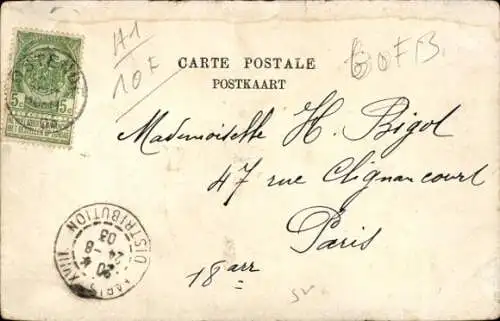 H1
10F
60FB.
CARTE POSTALE
POSTKAART
5 5
Mademoiselle H. Bigol
47 rue Clignancourt
Paris
18 arr
PARIS XVIII DISTRIBUTION
20
24 - 8
03